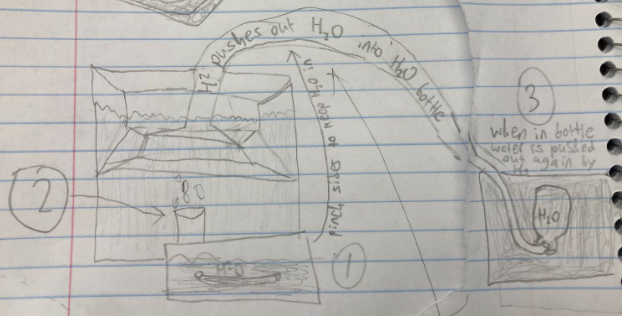 H² pushes out H₂O into H₂O bottle
pinch sides to keep H₂O in
3
when in bottle
water is pushed
out again by
H₂
2
H₂O
H₂O
1